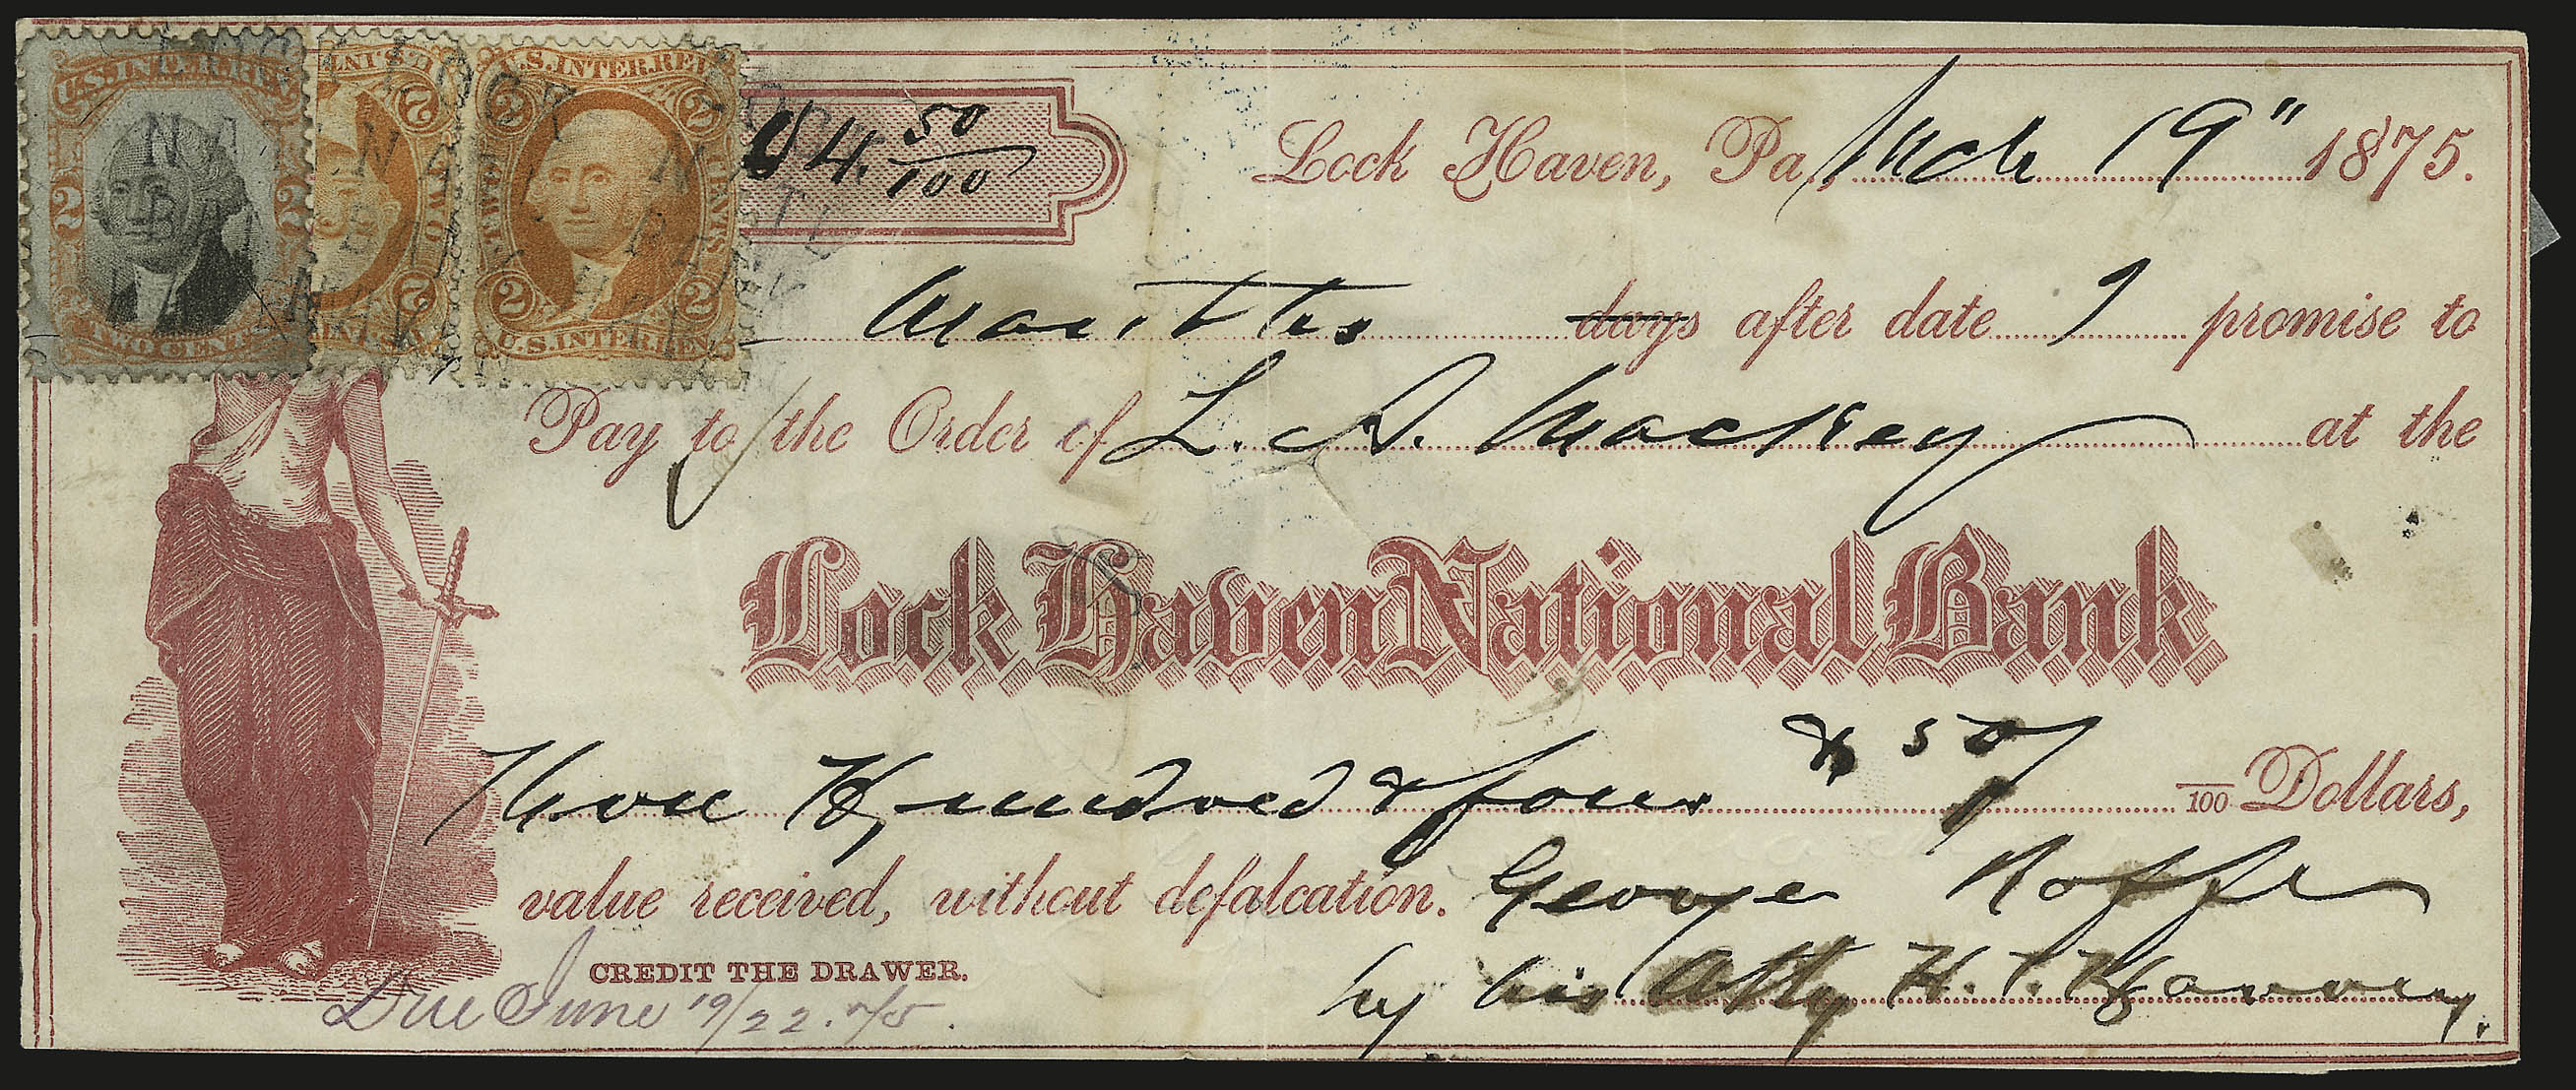 U.S. INTER. REV. U.S. INTER. REV. U.S. INTER. REV.
2 2 2 2 2 2
TWO CENTS TWO CENTS
U.S. INTER. REV.
NAT NAT
BANK
04. 50/100
Lock Haven, Pa, Mch 19" 1875.
Months days after date I promise to
Pay to the Order of L. A. Mackey at the
Lock Haven National Bank
Hundred & four & 50/100 Dollars,
value received, without defalcation. George Roffe
by his Atty H. T. Harvey.
CREDIT THE DRAWER.
Due June 19/22. 75.